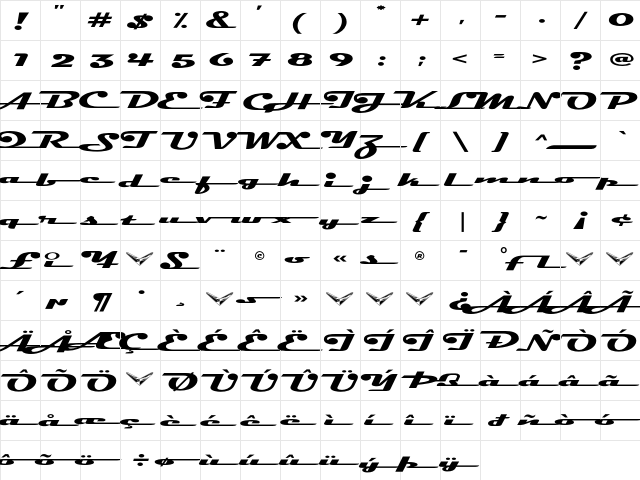 ! " # $ % & ' ( ) * + , - . / 0
1 2 3 4 5 6 7 8 9 : ; < = > ? @
A B C D E F G H I J K L M N O P
Q R S T U V W X Y Z [ \ ] ^ _ `
a b c d e f g h i j k l m n o p
q r s t u v w x y z { | } ~ ¡ ¢
£ ¤ ¥ S ¨ © « ® ¯ °
´ ¶ · ¸ » ¿ À Á Â Ã
Ä Å Æ Ç È É Ê Ë Ì Í Î Ï Ð Ñ Ò Ó
Ô Õ Ö Ø Ù Ú Û Ü Ý Þ ß à á â ã
ä å æ ç è é ê ë ì í î ï đ ñ ò ó
ô õ ö ÷ ø ù ú û ü ý þ ÿ